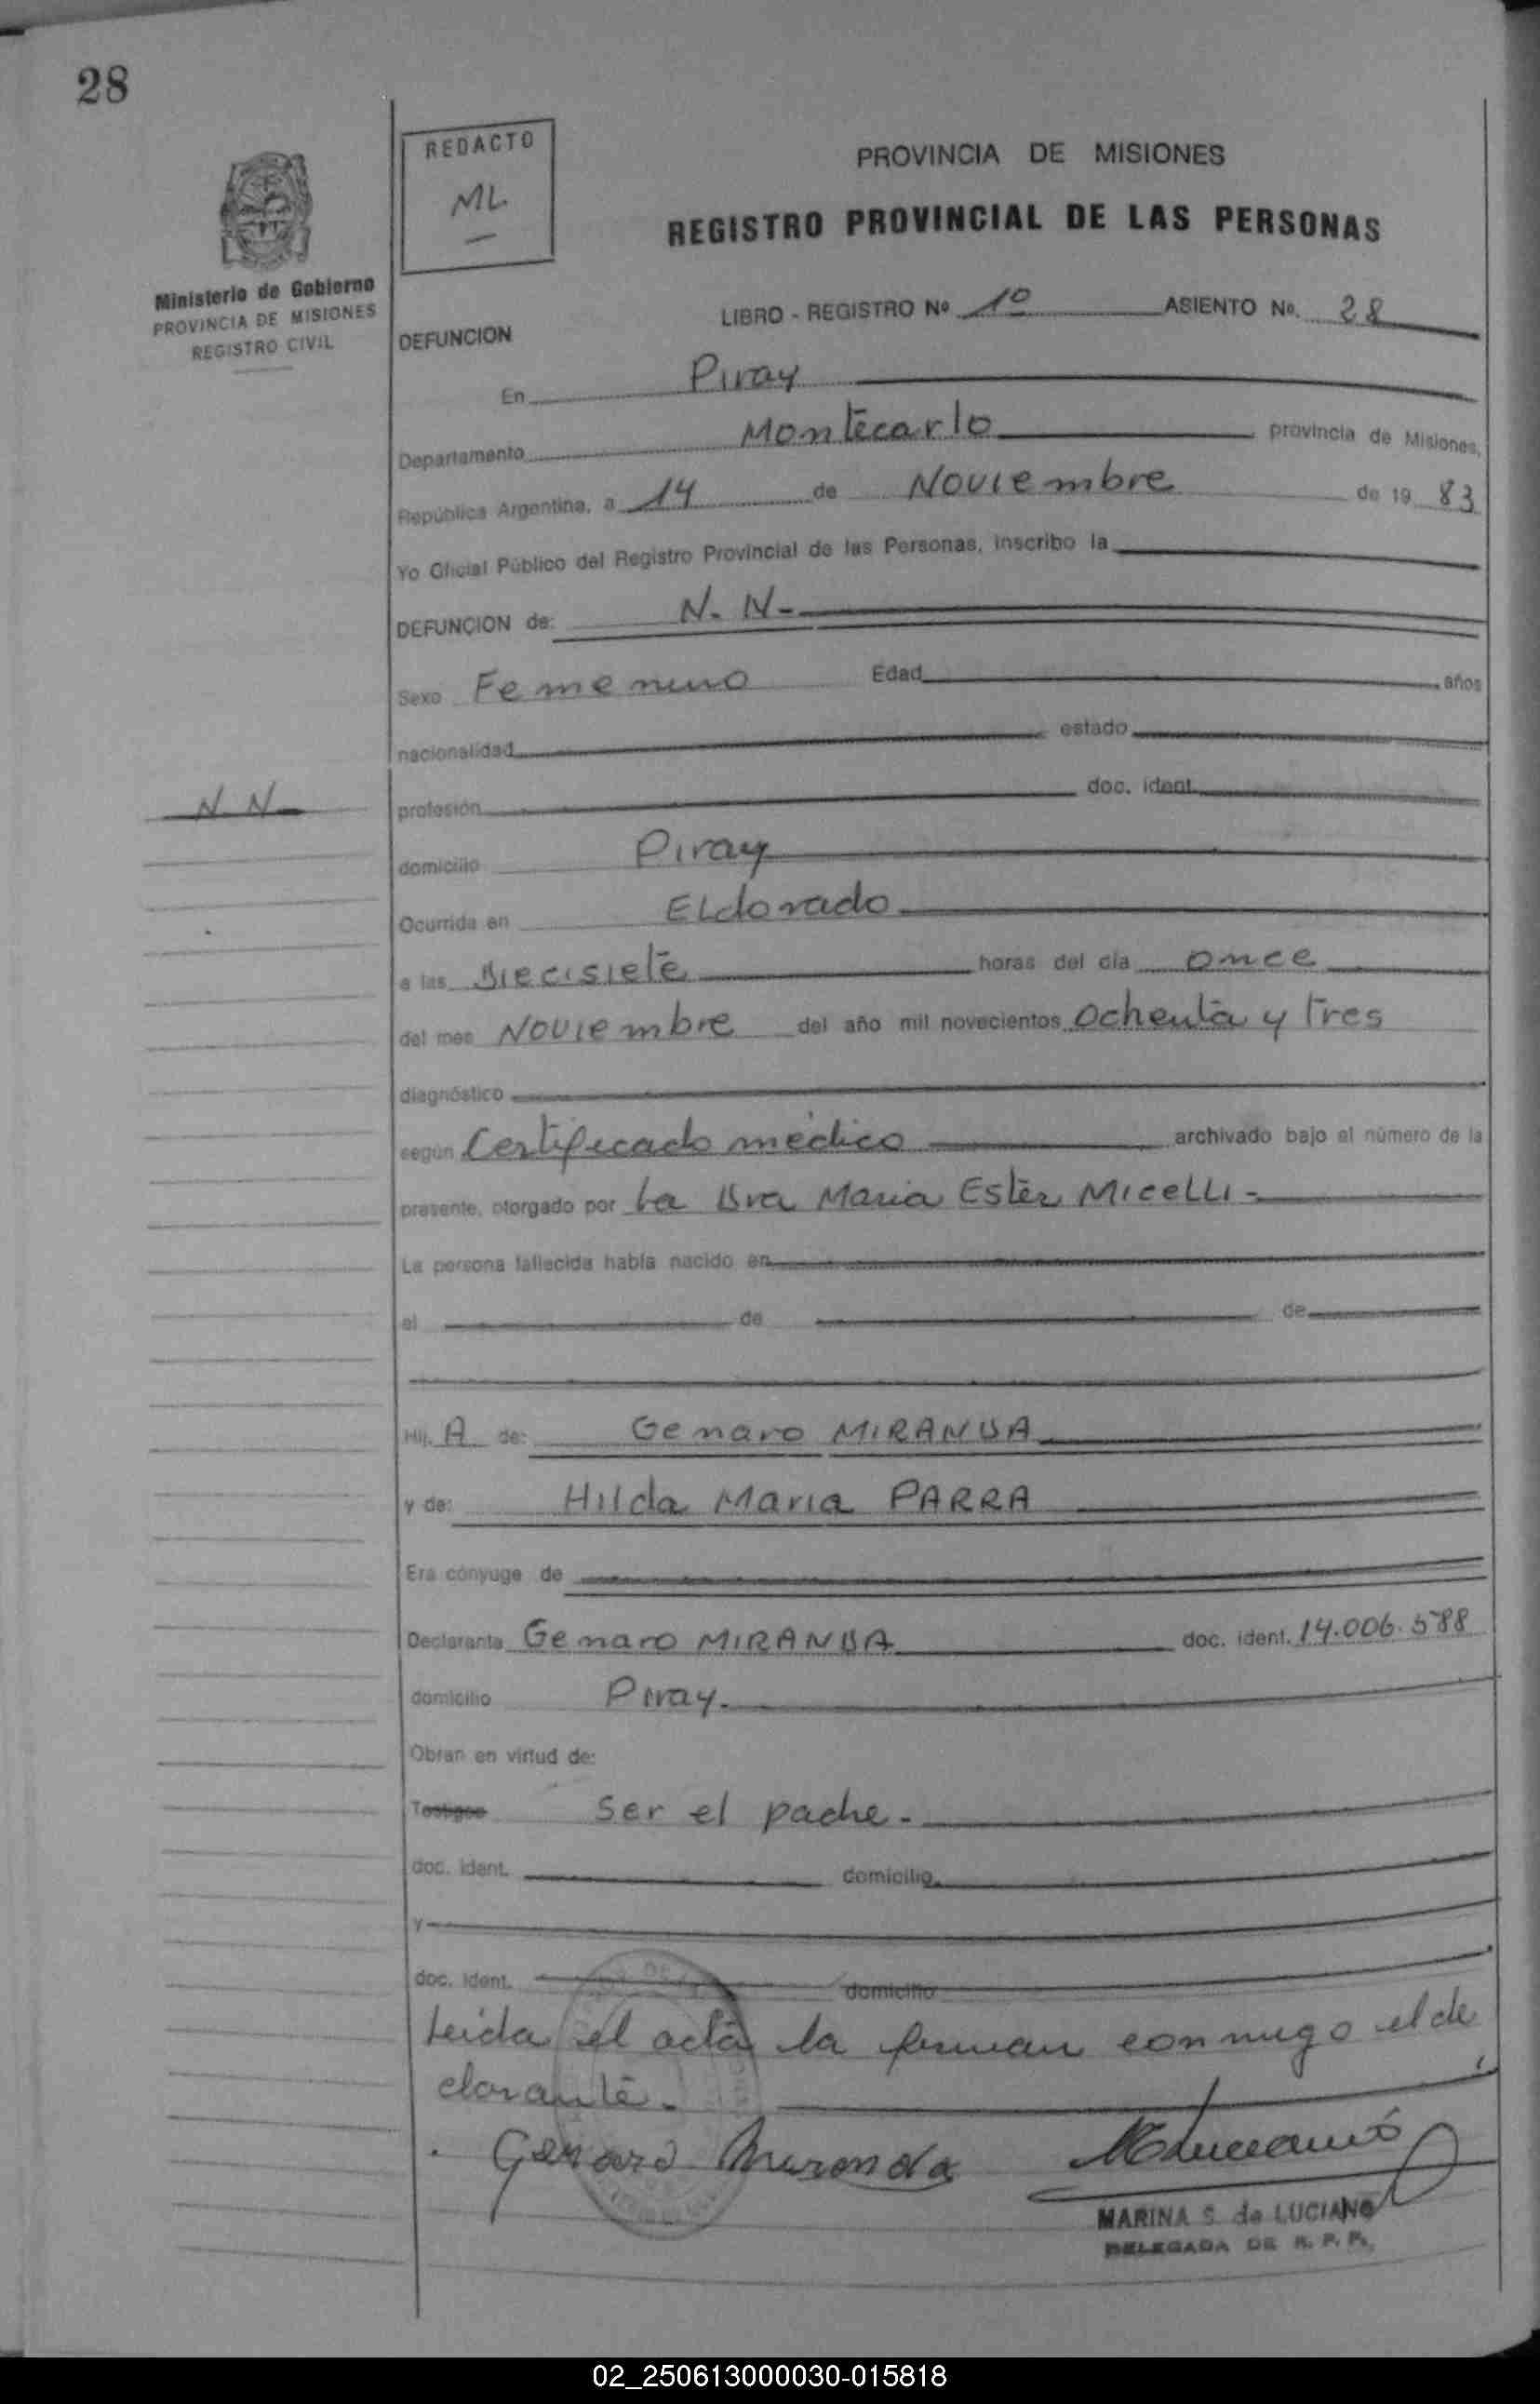 28
REDACTO
ML
Ministerio de Gobierno
PROVINCIA DE MISIONES
REGISTRO CIVIL
PROVINCIA DE MISIONES
REGISTRO PROVINCIAL DE LAS PERSONAS
LIBRO - REGISTRO Nº 1º ASIENTO Nº. 28
DEFUNCION
En Piray
Departamento Montecarlo provincia de Misiones,
República Argentina, a 14 de Noviembre de 19 83
Yo Oficial Público del Registro Provincial de las Personas, inscribo la
DEFUNCION de: N. N-
Sexo Femenino Edad años
nacionalidad estado
N. N
profesión doc. ident.
domicilio Piray
Ocurrida en Eldorado
a las Diecisiete horas del día once
del mes Noviembre del año mil novecientos Ochenta y Tres
diagnóstico
según Certificado médico archivado bajo el número de la
presente, otorgado por La Dra Maria Ester Micelli-
La persona fallecida había nacido en
el de de
Hij. A de: Genaro MIRANDA
y de: Hilda Maria PARRA
Era cónyuge de
Declarante Genaro MIRANDA doc. ident. 14.006.588
domicilio Piray.
Obran en virtud de:
Testigos Ser el padre.
doc. ident. domicilio
y
doc. ident. domicilio
Leida el acta la firman conmigo el de
clarante.
Genaro Miranda
MARINA S. de LUCIANO
DELEGADA DE R. P. P.
02_250613000030-015818